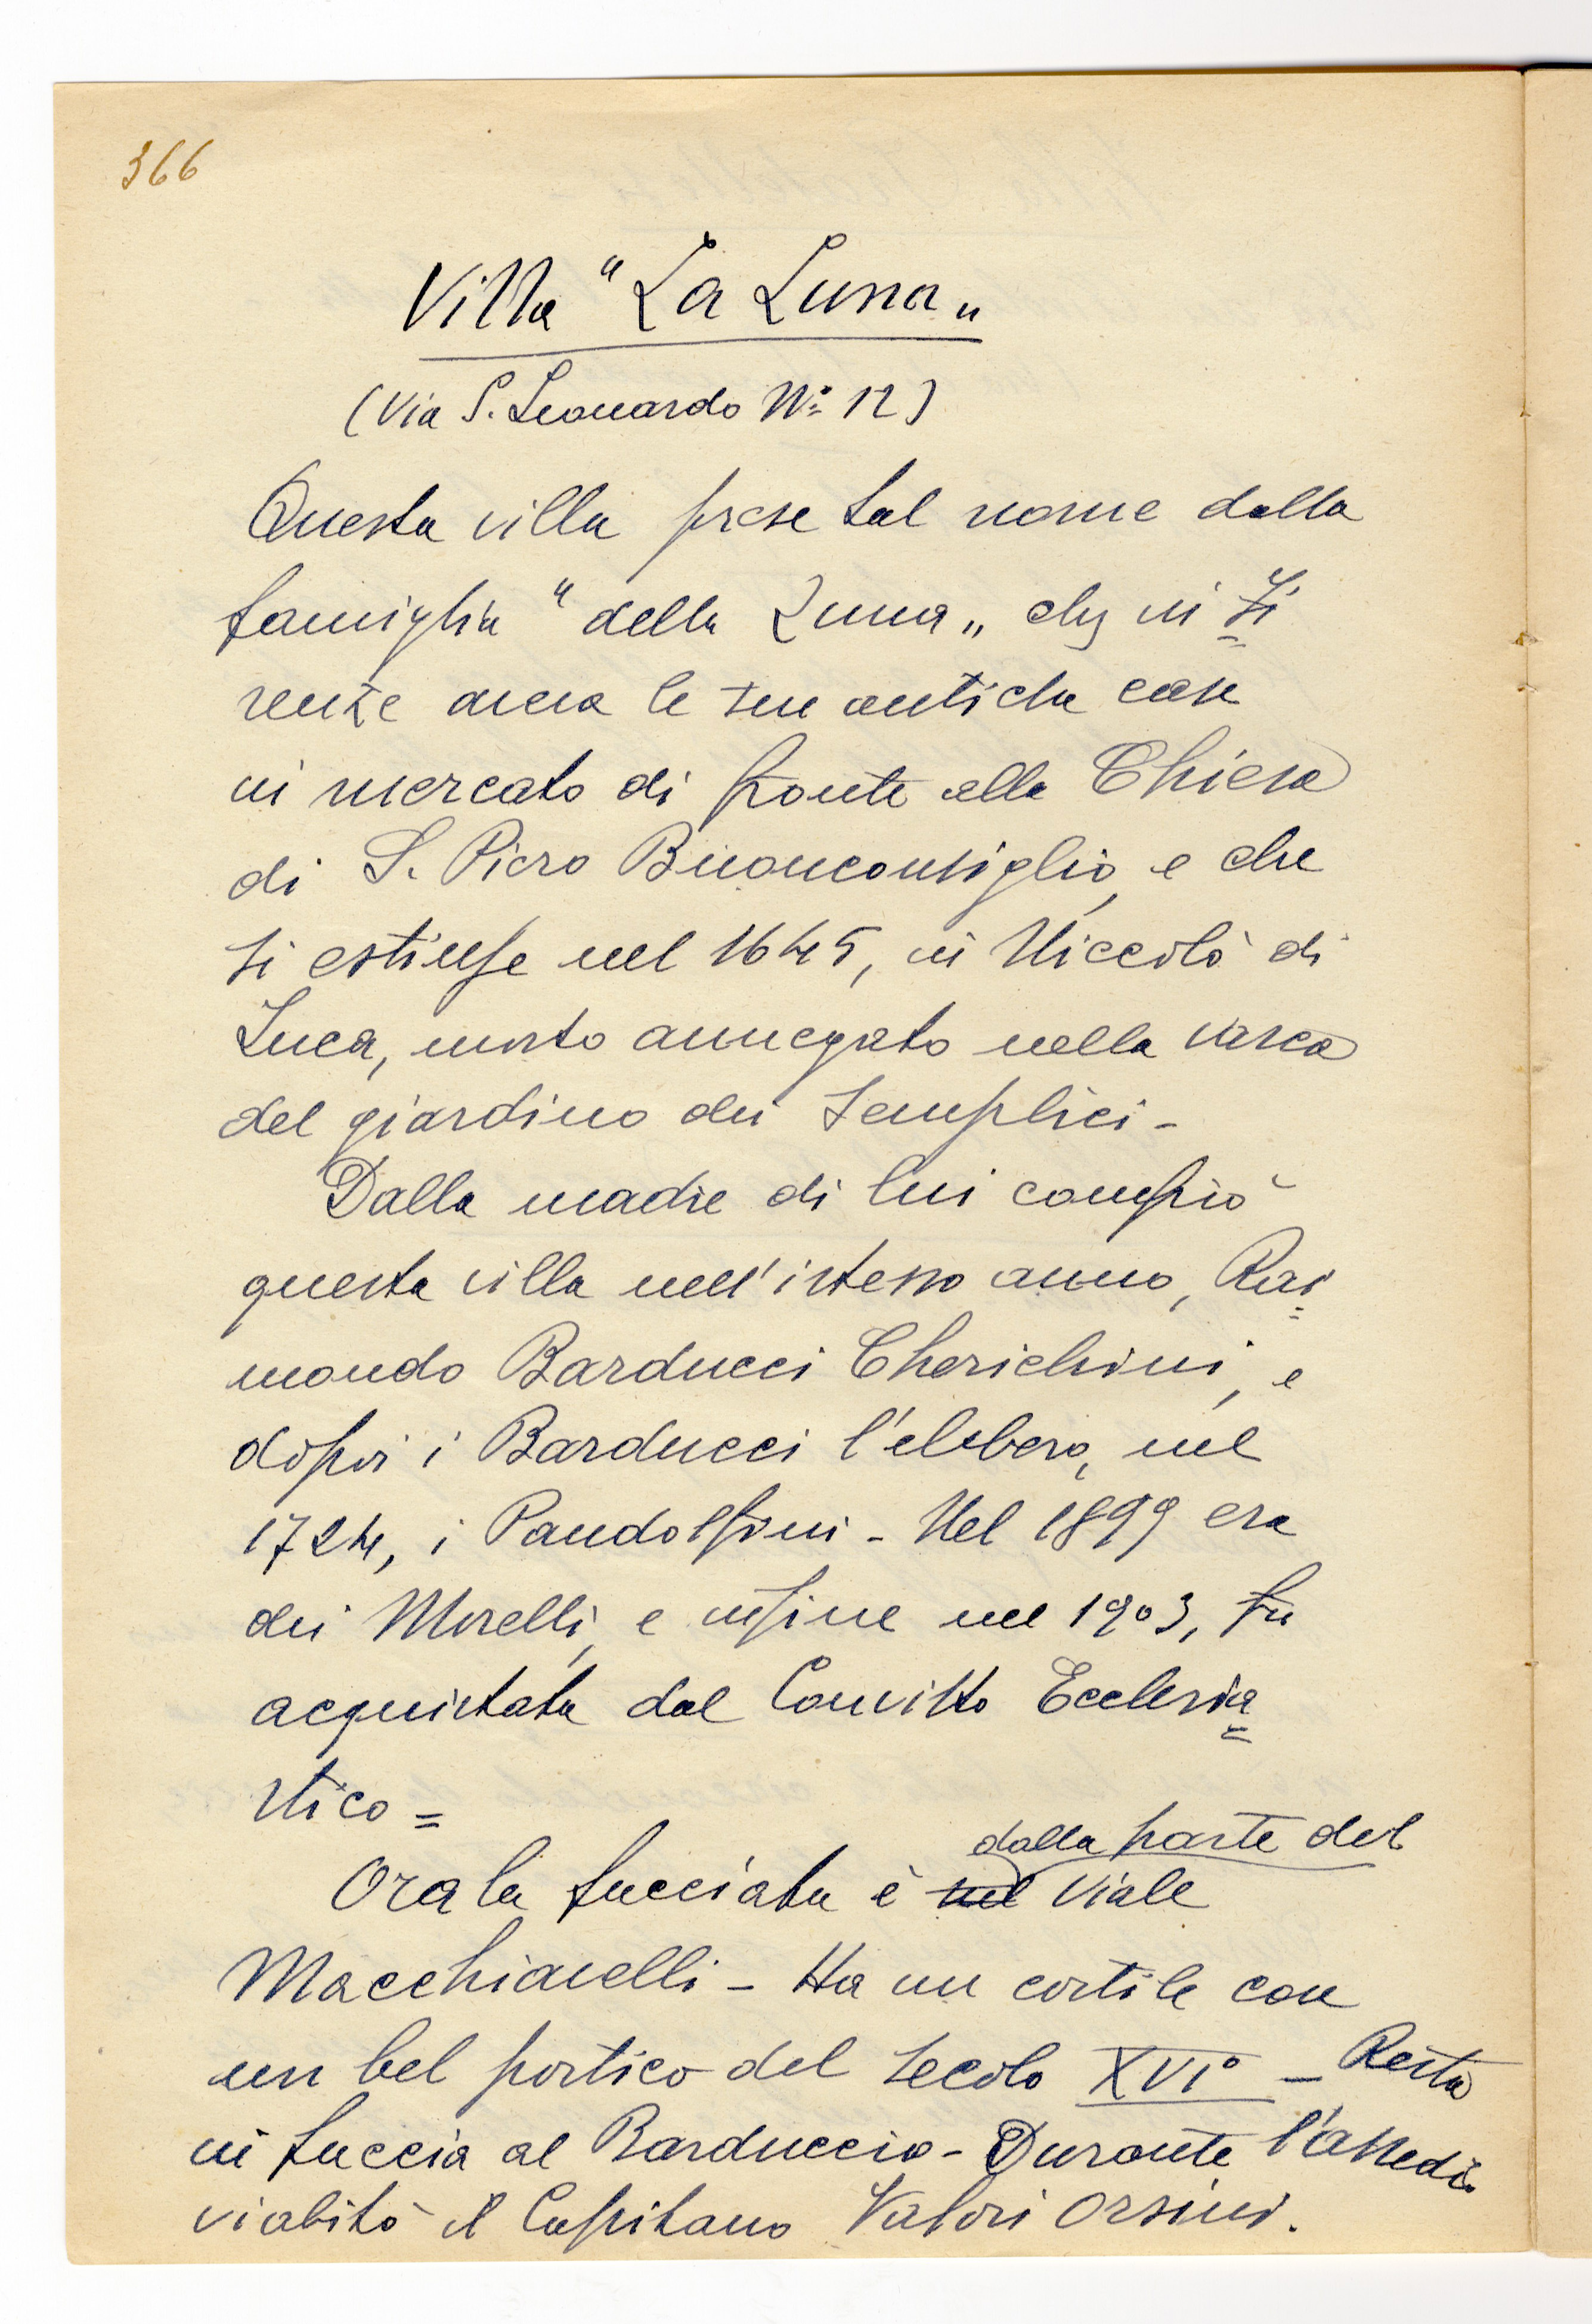 366
Villa "La Luna„
(Via S. Leonardo Nº 12)
Questa villa prese tal nome dalla
famiglia "della Luna„ che in Fi=
renze aveva le sue antiche case
in mercato di fronte alla Chiesa
di S. Piero Buonconsiglio, e che
si estinse nel 1645, in Niccolò di
Luca, morto annegato nella vasca
del giardino dei Semplici -
Dalla madre di lui comprò
questa villa nell'istesso anno, Rai=
mondo Barducci Cherichini, e
dopoi i Barducci l'ebbero, nel
1724, i Pandolfini - Nel 1899 era
dei Morelli, e infine nel 1903, fu
acquistata dal Convitto Ecclesia=
stico =
dalla parte del
Ora la facciata è sul viale
Macchiavelli - Ha un cortile con
un bel portico del secolo XVIº - Resta
in faccia al Barduccio - Durante l'assedio
vi abitò il Capitano Valori Orsini.